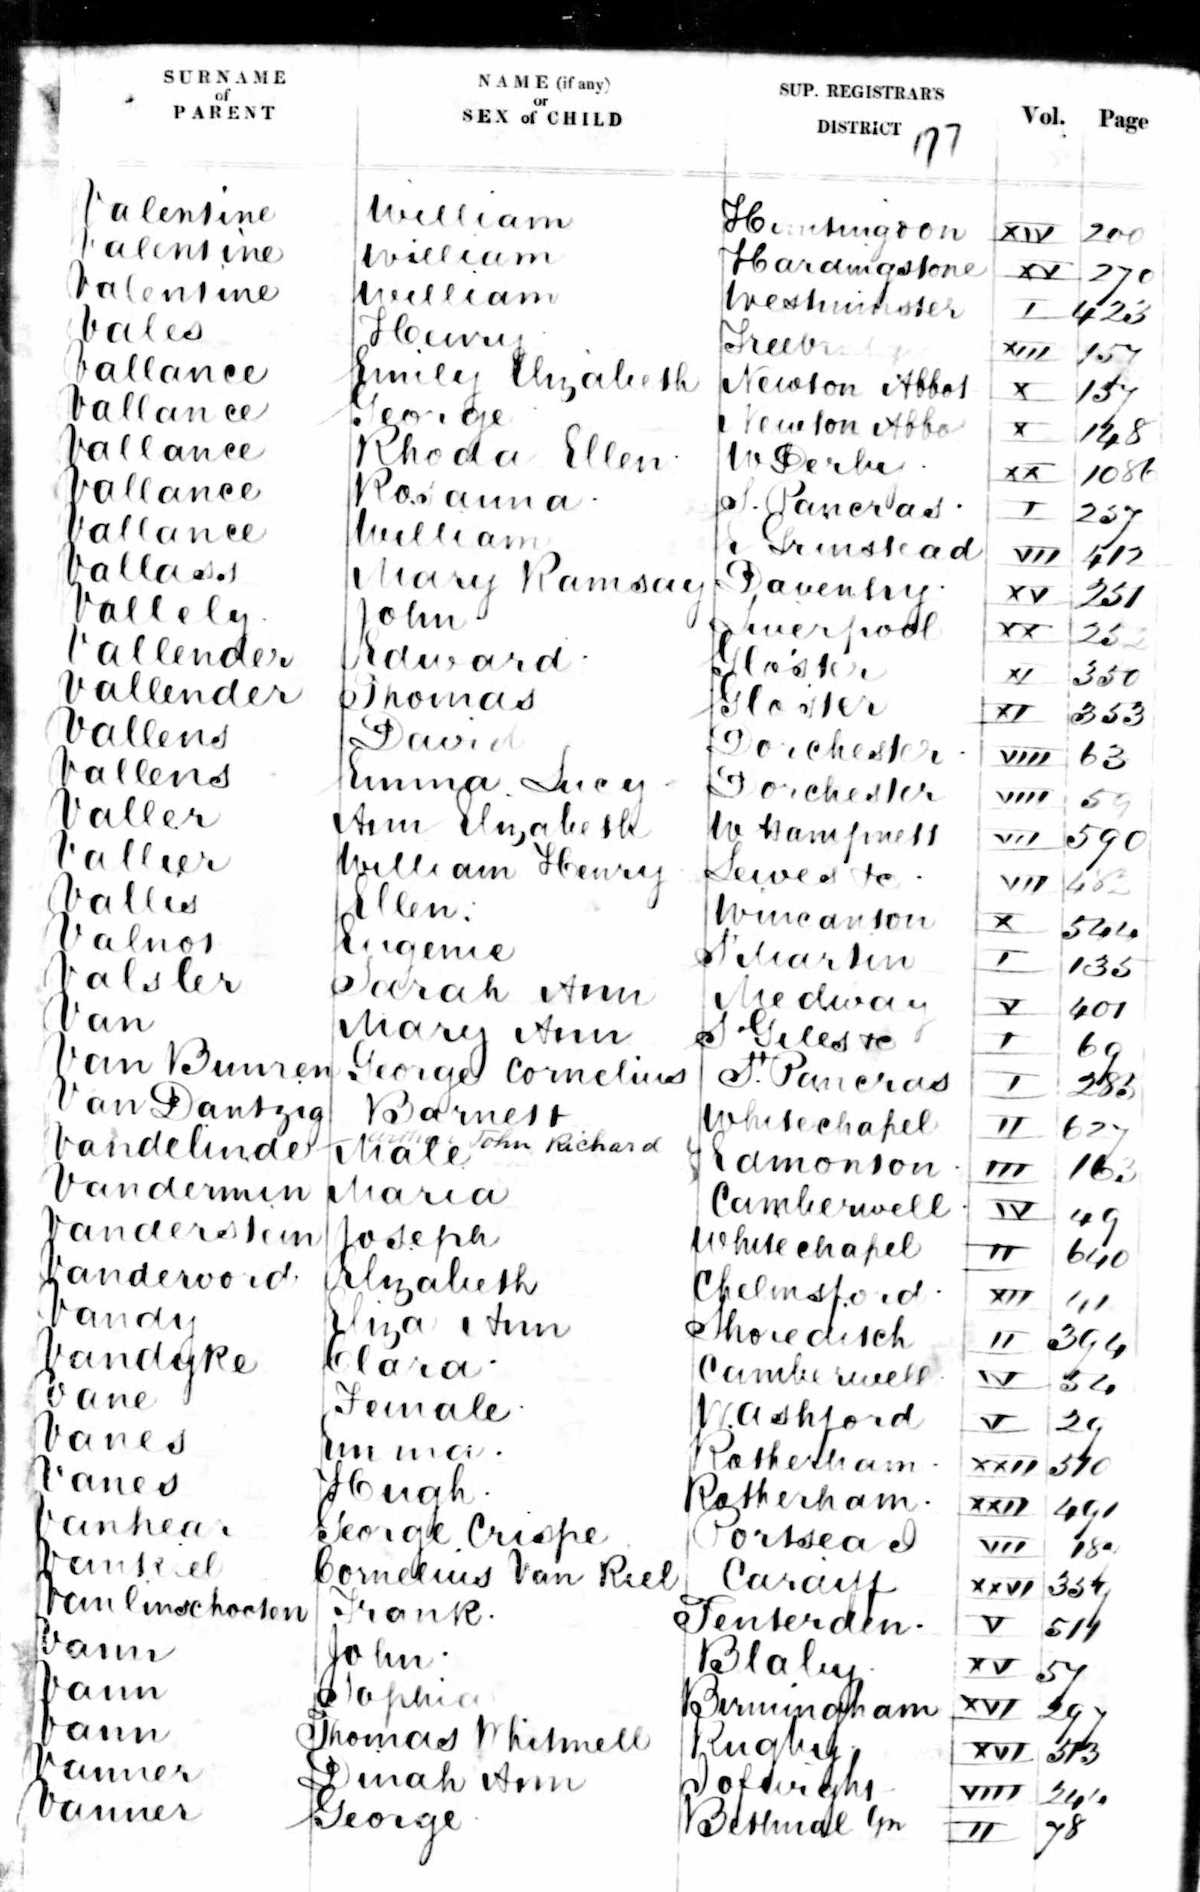 SURNAME of PARENT NAME (if any) or SEX of CHILD SUP. REGISTRAR'S DISTRICT Vol. Page
177
Valentine William Huntingdon XIV 200
Valentine William Hardingstone XV 270
Valentine William Westminster I 423
Vales Henry XIII 157
Vallance Emily Elizabeth Newton Abbot X 157
Vallance George Newton Abbo X 148
Vallance Rhoda Ellen W Derby XX 1086
Vallance Rosanna S. Pancras I 237
Vallance William Grinstead VII 412
Vallass Mary Ramsay Daventry XV 251
Vallely John Liverpool XX
Vallender Edward Gloster XI 350
Vallender Thomas Gloster XI 353
Vallens David Dorchester VIII 63
Vallens Emma Lucy Dorchester VIII 59
Valler Ann Elizabeth W Hampnett VII 590
Vallier William Henry Lewes &c VII
Vallis Ellen Wincanton X 544
Valnot Eugenie St Martin I 135
Valsler Sarah Ann Medway V 401
Van Mary Ann S Giles &c I 69
Van Bunren George Cornelius St. Pancras I 283
Van Dantzig Barnett Whitechapel II 627
Vandelinde Male John Richard Edmonton III 163
Vandermin Maria Camberwell IV 49
Vanderstein Joseph Whitechapel II 640
Vandervord Elizabeth Chelmsford XII
Vandy Eliza Ann Shoreditch II 394
Vandyke Clara Camberwell IV 34
Vane Female W. Ashford V 29
Vanes Emma Rotherham XXII 510
Vanes Hugh Rotherham XXII 491
Vanhear George Crispe Portsea I VII
Vankiel Cornelius Van Kiel Cardiff XXVI 354
Vanlinschooten Frank Tenterden V 514
Vann John Blaby XV 57
Vann Sophia Birmingham XVI 297
Vann Thomas Whitmell Rugby XVI 513
Vanner Dinah Ann VIII
Vanner George Bethnal Gn II 78